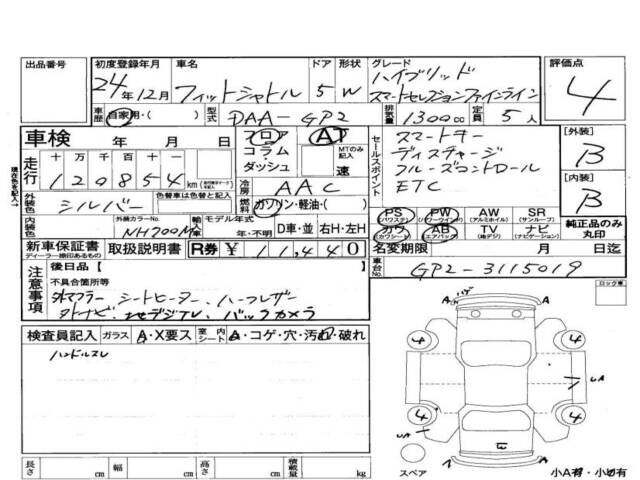 出品番号
初度登録年月 車名 ドア 形状 グレード 評価点
24年12月 フィットシャトル 5 W ハイブリッド
スマートセレクションファインライン
4
車歴 自家用・( ) 型式 DAA-GP2 排気量 1300cc 定員 5人
車検 年 月 日 フロア AT
コラム MTのみ記入
ダッシュ 速
走行 十 万 千 百 十 一
120854 km
現在色を記入→
冷房 AAC
外装色 色替車は色替と記入
シルバー
燃料 ガソリン・軽油・( )
内装色 外装カラーNo. NH700M 輸入車 モデル年式
D車・並 右H・左H
セールスポイント
スマートキー
ディスチャージ
クルーズコントロール
ETC
[外装] B
[内装] B
PS PW AW SR
(パワステ) (パワーウインド) (アルミホイル) (サンルーフ)
カワ AB TV ナビ
(カワシート) (エアバック) (地デジ) (ナビゲーション)
純正品のみ丸印
新車保証書 取扱説明書 R券 ¥ 11,440
ディーラー捺印あるもの
名変期限 月 日迄
車台No. GP2-3115019
注意事項
後日品【
不具合箇所等
外マフラー シートヒーター、ハーフレザー
外ナビ、地デジTV、バックカメラ
ロック車
検査員記入 ガラス A・X要ス 室内シート A・コゲ・穴・汚れ・破れ
ハンドルスレ
A
4 4
UA
4 4
UA
E
スペア
小A有・小凹有
長さ cm 幅 cm 高さ cm 積載量 kg